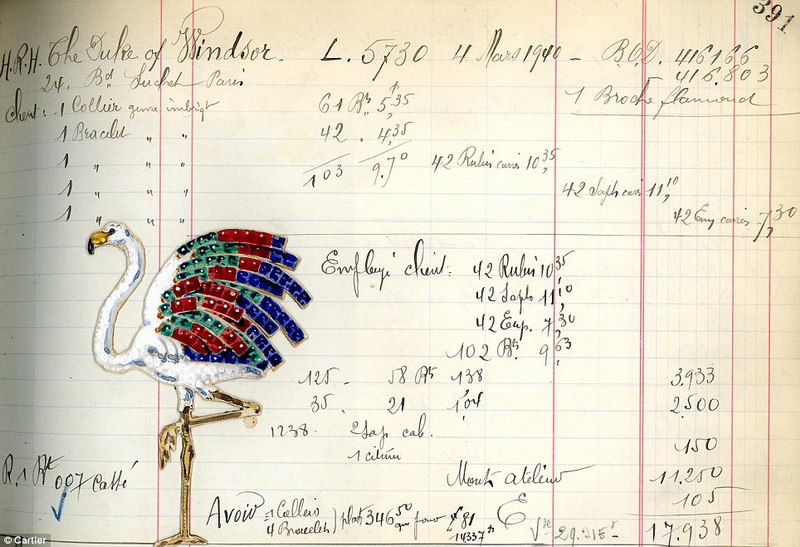 391
H.R.H. The Duke of Windsor. L. 5730 4 Mars 1940 - B.O.D. 416166
416.803
24. Bd Suchet Paris
1 Broche flamand
client: 1 Collier genre 61 Bts 5,35
1 Bracelet " " 42 . 4,35
1 " " 103 9.70 42 Rubis carrés 10,35
1 " " 42 Saphs carrés 11,10
1 " " 42 Em carrés 7,30
Employé client: 42 Rubis 10,35
42 Saphs 11,10
42 Em. 7,30
102 Bts 9,63
125 - 58 Bts 1,38 3.933
35 . 21 1,04 2.500
1238 - 2 Sap cab. 150
1 citrine
R. 1 Bt 007 Monte atelier 11.250
105
Avoir 1 Colliers
4 Bracelets platt 346,50 pour £ 81 E 29.315 17.938
14337
© Cartier